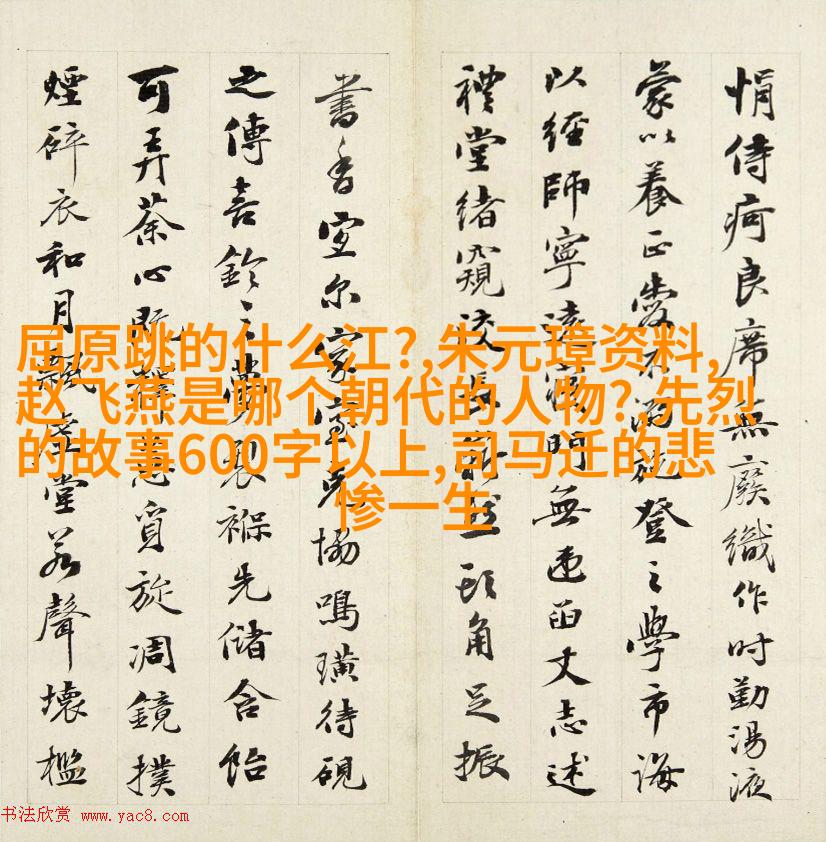 屈原跳的什么江?,朱元璋资料,
赵飞燕是哪个朝代的人物?,先烈
的故事600字以上,司马迁的悲
惨一生
悁侍疴良席無廢織作时勤湯液
蒙以養正愛不施登之學市海
以經師寧遠門無函丈志述
禮堂緒窺長頭角足振
書香室尔家協鳴璜待硯
之傳喜鈴夢褓先儲含飴
可弄茶心覓旋凋鏡撲
煙碎衣和月飄虛堂若聲壞槛
书法欣赏 www.yac8.com